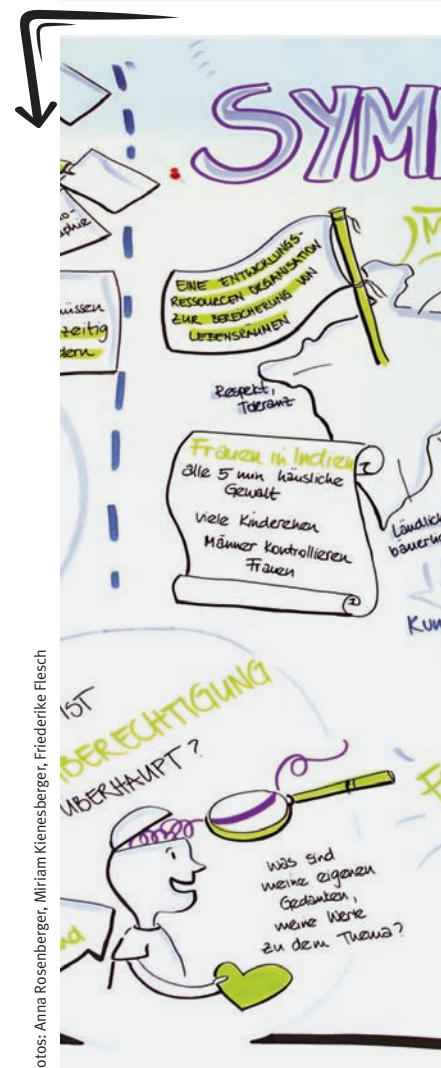 SYM
o-
phie
üssen
zeitig
dern
EINE ENTWICKLUNGS-
RESSOURCEN ORGANISATION
ZUR BEREICHERUNG VON
LEBENSRÄUMEN
M
Respekt,
Toleranz
Frauen in Indien
alle 5 min häusliche
Gewalt
viele Kinderehen
Männer kontrollieren
Frauen
Ländlich
bäuerli
Kun
IST
BERECHTIGUNG
ÜBERHAUPT?
F
was sind
meine eigenen
Gedanken,
meine Werte
zu dem Thema?
nd
otos: Anna Rosenberger, Miriam Kienesberger, Friederike Flesch